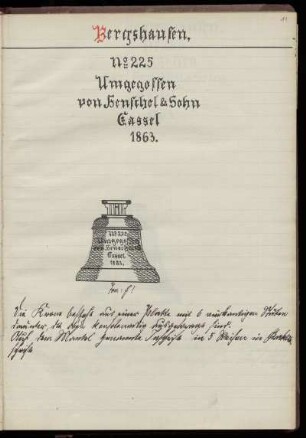 Bergshausen.
No 225
Umgegossen
von Henschel & Sohn
Cassel
1863.
No 225.
Umgegossen
von Henschel & Sohn
Cassel
1863.
Die Krone besteht aus einer Platte mit 6
sind.
Auf dem Mantel genannte Inschrift in 5 Reihen in
schrift